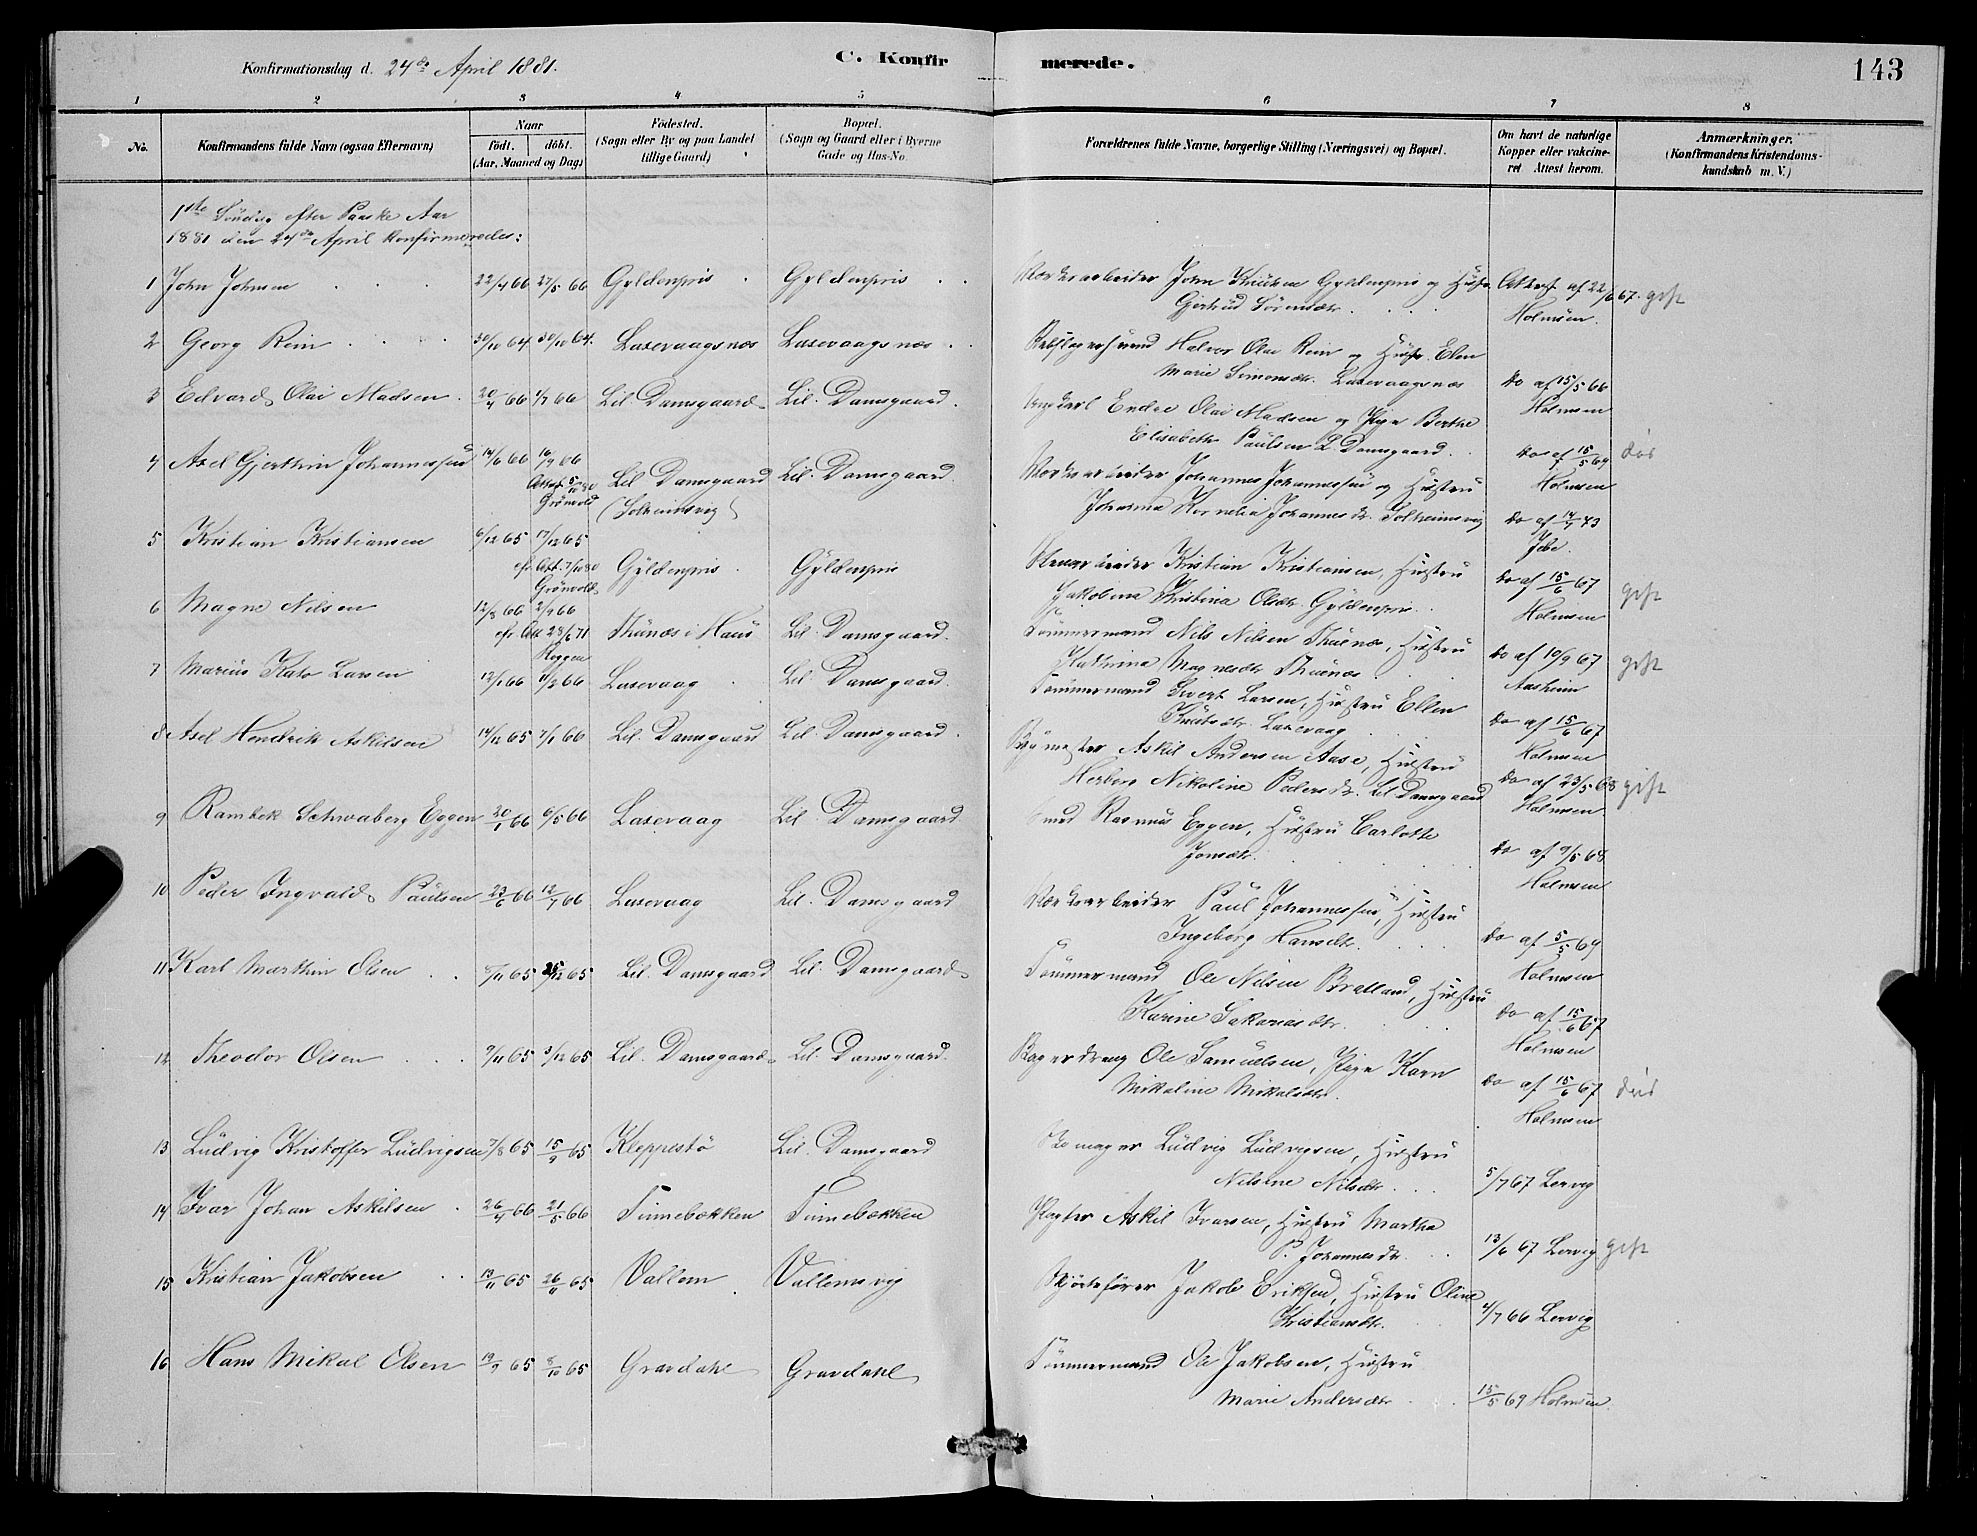 Konfirmationsdag d. 24de April 1881.
C. Konfir merede.
143
1 2 3 4 5 6 7 8
No.
Konfirmandens fulde Navn (ogsaa Efternavn)
Naar
födt. döbt.
(Aar, Maaned og Dag)
Födested.
(Sogn eller By og paa Landet
tillige Gaard)
Bopæl.
(Sogn og Gaard eller i Byerne
Gade og Hus-No.
Forældrenes fulde Navne, borgerlige Stilling (Næringsvei) og Bopæl.
Om havt de naturlige
Kopper eller vakcine-
ret Attest herom.
Anmærkninger.
(Konfirmandens Kristendoms-
kundskab m. V.)
1ste Söndag efter Paaske Aar
1881 den 24de April konfirmeredes:
1 John Johnsen 22/4 66 27/5 66 Gyldenpris Gyldenpris John Knudsen Gyldenpris og Hustr. Attest af 22/6 67. gift
Gjertrud Sörensdtr. Holmsen.
2 Georg Rein 30/10 64 30/10 64. Laxevaagsnæs Laxevaagsnæs Halvor Olai Rein og Hustr. Elen
Marie Simonsdtr. Laxevaagsnæs do af 15/5 66
Holmsen
3 Edvard Olai Madsen 20/4 66 1/7 66 Lil. Damsgaard Lil. Damsgaard. Ungkarl Endre Olai Madsen og Pige Berthe
Elisabeth Paulsen L. Damsgaard. do af 15/5 69 död
Holmsen
4 Axel Gjerthin Johannessen 14/6 66 16/9 66 Lil Damsgaard Lil. Damsgaard. Johannes Johannessen og Hustru
Attest 5/10 80
Grönvold (Solheimsvig)
Johanna Kornelia Johannesdr. Solheimsvig do af 14/7 73
Jebe.
5 Kristian Kristiansen 6/12 65 17/12 65 Gyldenpris Gyldenpris Kristian Kristiansen, Hustru
efr. Att. 7/10 80
Grönvold
Jakobina Kristina Olsdtr. Gyldenpris. do af 15/6 67 gift
Holmsen
6 Magne Nilsen 12/8 66 2/9 66 Thunæs i Haus Lil. Damsgaard. Tömmermand Nils Nilsen Thunæs, Hustru
efr. Att 28/6 71
Kathrina Magnesdtr Thunæs. do af 10/9 67 gift
Aasheim
7 Marius Kato Larsen 12/1 66 11/2 66 Laxevaag Lil Damsgaard. Tömmermand Sivert Larsen, Hustru Ellen
Laxevaag do af 15/6 67
Holmsen
8 Axel Hendrik Askilsen 14/12 65 7/1 66 Lil. Damsgaard Lil. Damsgaard. Askil Andersen Aase, Hustru
Herborg Nikoline Pedersdr. Lil Damsgaard do af 23/5 68 gift
Holmsen.
9 Rambek Schwaberg Eggen 20/1 66 6/5 66 Laxevaag Lil. Damsgaard Smed Rasmus Eggen, Hustru Carlotte
Jonsdtr. do af 9/5 68
Holmsen
10 Peder Ingvald Paulsen 23/6 66 12/7 66 Laxevaag Lil. Damsgaard Paul Johannessen, Hustru
Ingeborg Hansdtr. do af 5/5 69
Holmsen
11 Karl Marthin Olsen 8/11 65 25/12 65 Lil. Damsgaard Lil. Damsgaard Tömmermand Ole Nilsen Bratland, Hustru
Karine Sakariasdtr. do af 15/6 67
Holmsen
12 Theodor Olsen 9/11 65 3/12 65 Lil. Damsgaard Lil. Damsgaard. Bagerdreng Ole Samuelsen, Pige Karn
Mikaline Mikalsdtr. do af 15/6 67 död
Holmsen
13 Ludvig Kristoffer Ludvigsen 7/8 65 15/9 65 Kleppestö Lil. Damsgaard Skomager Ludvig Ludvigsen, Hustru
Nilsine Nilsdtr. 5/7 67 Lervig
14 Ivar Johan Askilsen 26/4 66 21/5 66 Tinnebækken Tinnebækken Pagter Askil Ivarsen, Hustru Martha
P. Johannesdtr. 13/6 67 Lervig gift
15 Kristian Jakobsen 13/11 65 26/11 65 Vallem Vallemsvig Jakob Eriksen, Hustru Oline
Kristiansdtr. 4/7 66 Lervig
16 Hans Mikal Olsen 19/9 65 8/10 65 Gravdahl Gravdahl Tömmermand Ole Jakobsen, Hustru
Marie Andersdtr 15/5 69 Holmsen.